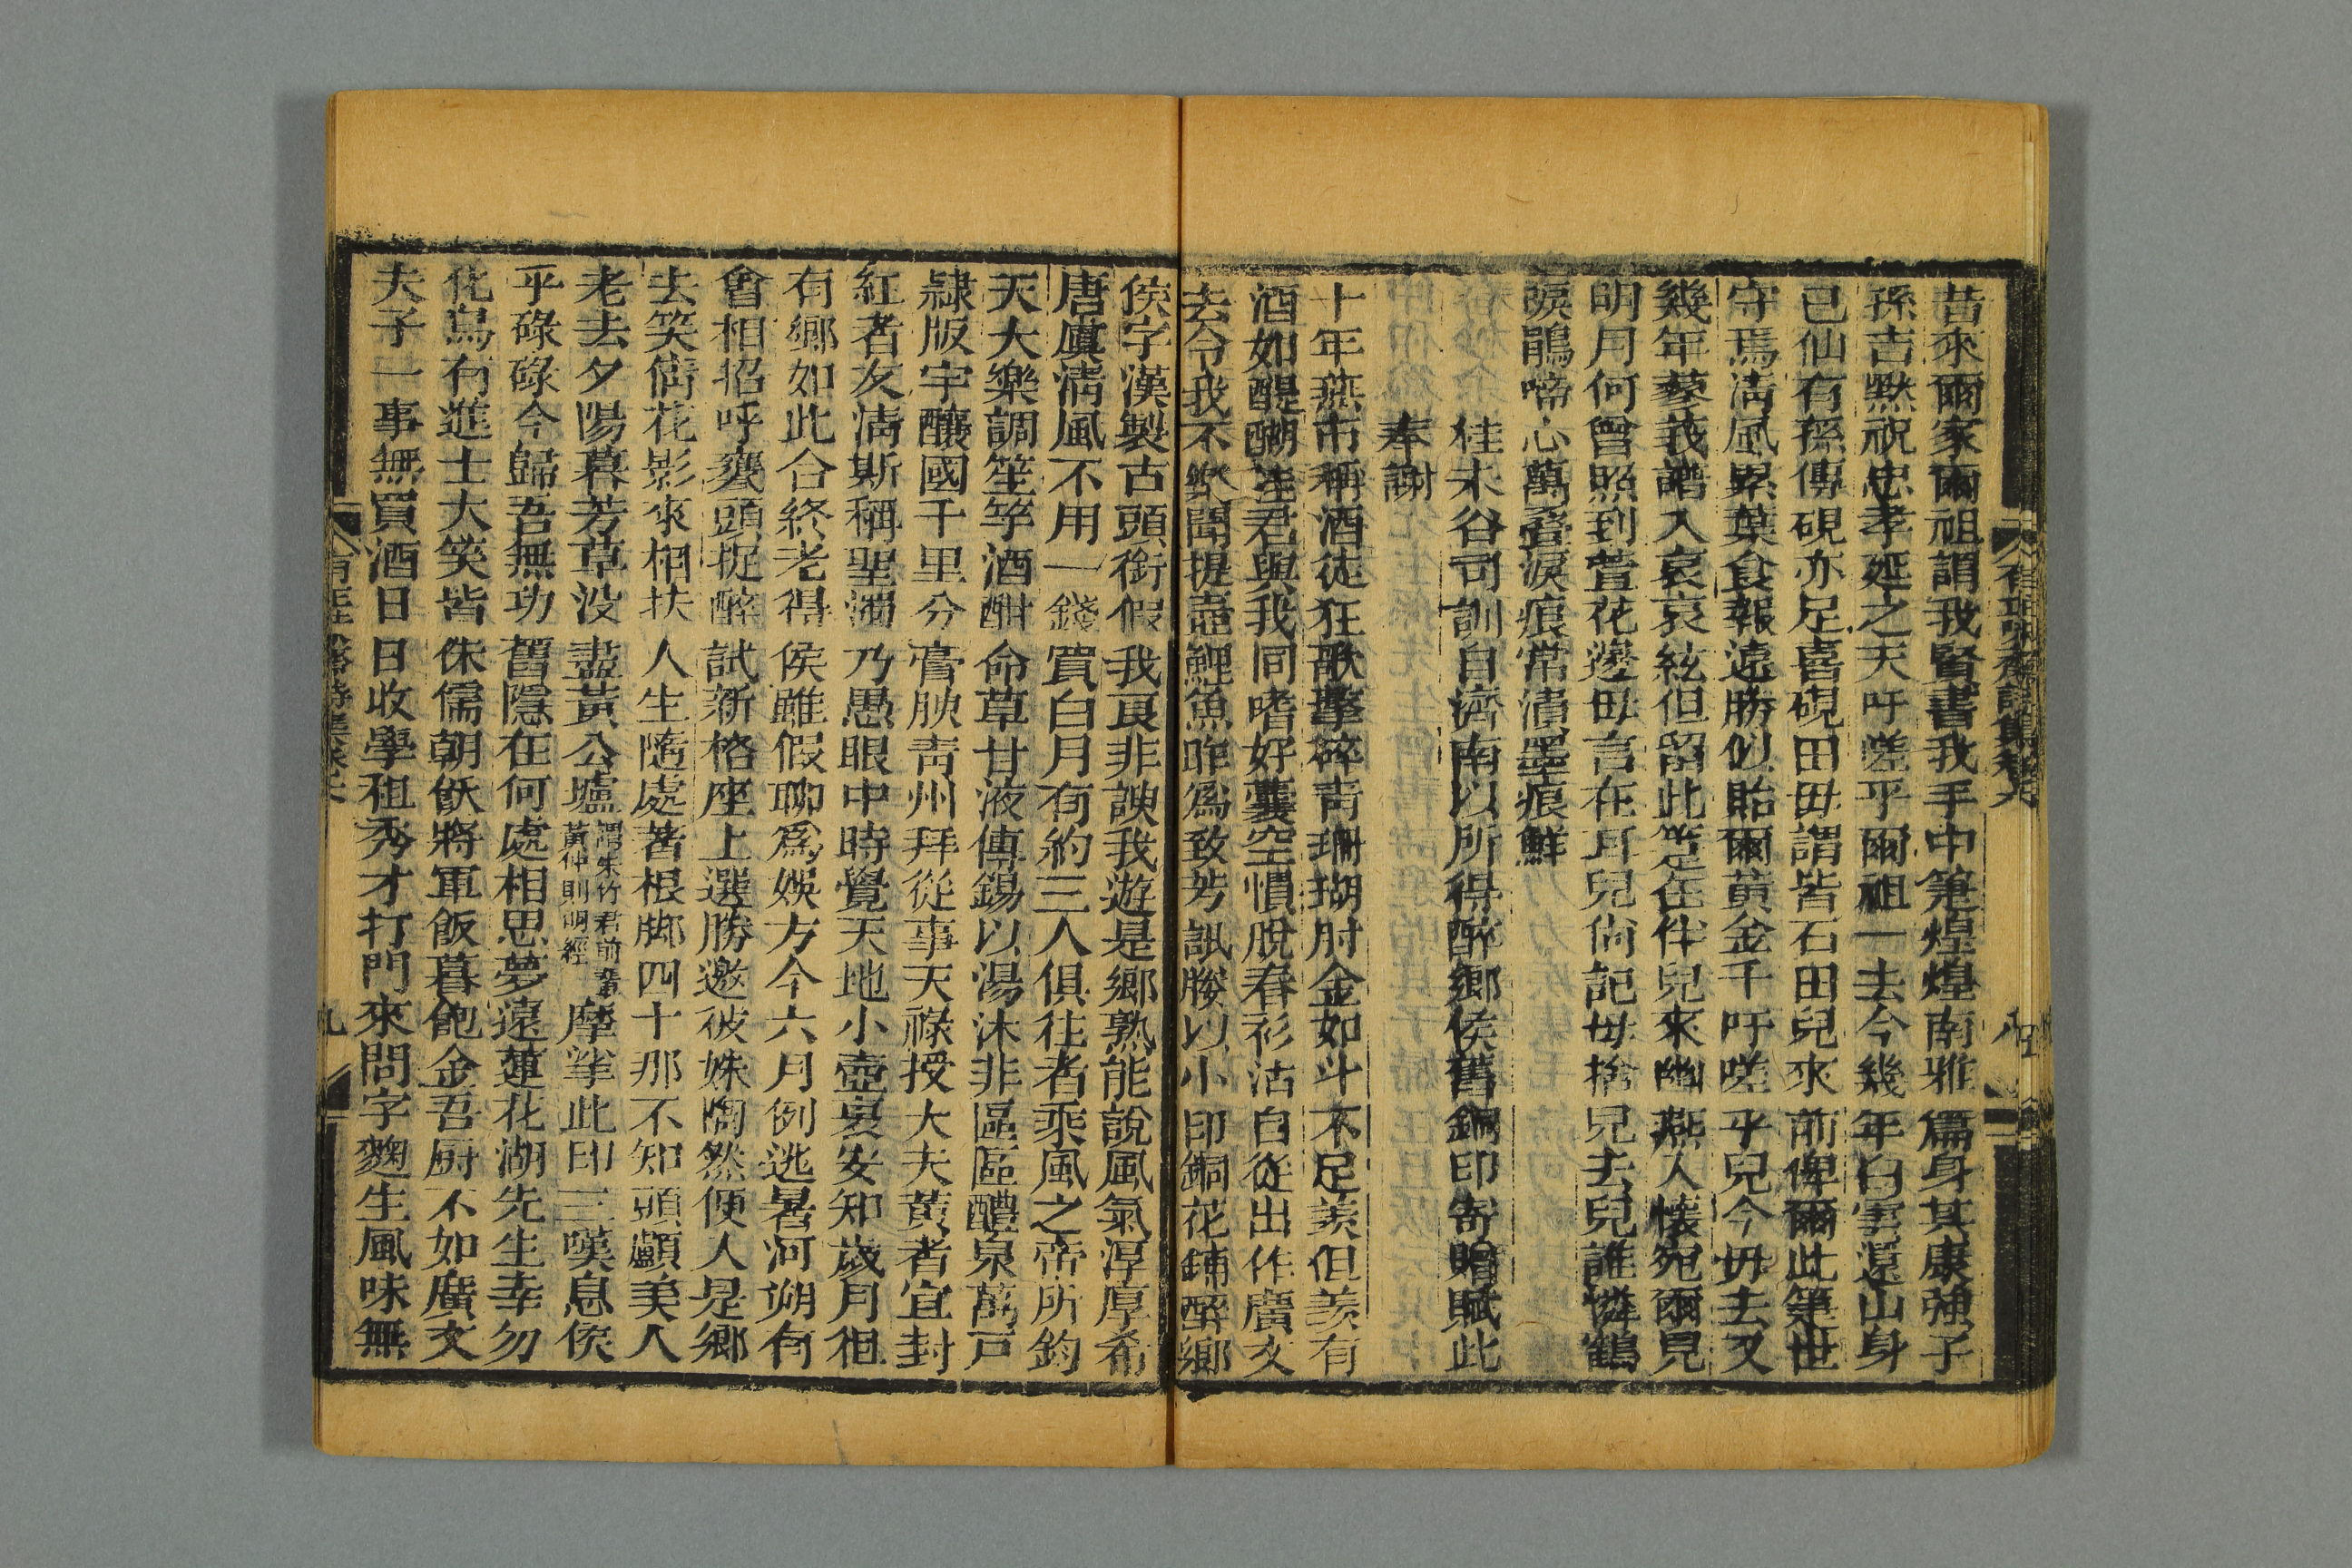 昔來爾家爾祖謂我賢書我手中筆煌煌南雅篇身其康強子
孫吉默祝忠孝延之天吁嗟乎爾祖一去今幾年白雲還山身
已仙有孫傳硯亦足喜硯田毋謂皆石田兒來前俾爾此筆世
守焉淸風累葉食報遠勝似貽爾黃金千吁嗟乎兒今毋去又
幾年蓼莪譜入哀哀絃但留此筆在伴兒來幽燕人懷宛爾見
明月何曾照到萱花邊母言在耳兒尙記母捨兒去兒誰憐鶴
淚鵑啼心萬疊淚痕常漬墨痕鮮
桂未谷司訓自濟南以所得醉鄉侯舊銅印寄贈賦此
奉謝
十年燕市稱酒徒狂歌擊碎靑珊瑚肘金如斗不足羨但羨有
酒如醍醐淮君與我同嗜好囊空慣脫春衫沽自從出作廣文
去令我不樂聞提壺鯉魚昨爲致芳訊媵以小印銅花鋪醉鄉
侯字漢製古頭銜假我良非諛我遊是鄉熟能說風氣淳厚希
唐虞淸風不用一錢買白月有約三人俱往者乘風之帝所鈞
天大樂調笙竽酒酣命草甘液傳錫以湯沐非區區醴泉萬戸
隷版宇釀國千里分膏腴靑州拜從事天祿授大夫黃者宜封
紅者友淸斯稱聖濁乃愚眼中時覺天地小壺裏安知歲月徂
有鄉如此合終老得侯雖假聊爲娛方今六月例逃暑河朔有
會相招呼甕頭捉醉試新格座上選勝邀彼姝陶然便入是鄉
去笑倚花影來相扶人生隨處著根脚四十那不知頭顱美人
老去夕陽暮芳草没盡黃公壚謂朱竹君前輩黃仲則明經摩挲此印三嘆息侯
乎碌碌今歸吾無功舊隱在何處相思夢遠蓮花湖先生幸勿
化烏有進士大笑皆侏儒朝飫將軍飯暮飽金吾廚不如廣文
夫子一事無買酒日日收學租秀才打門來問字麴生風味無
九